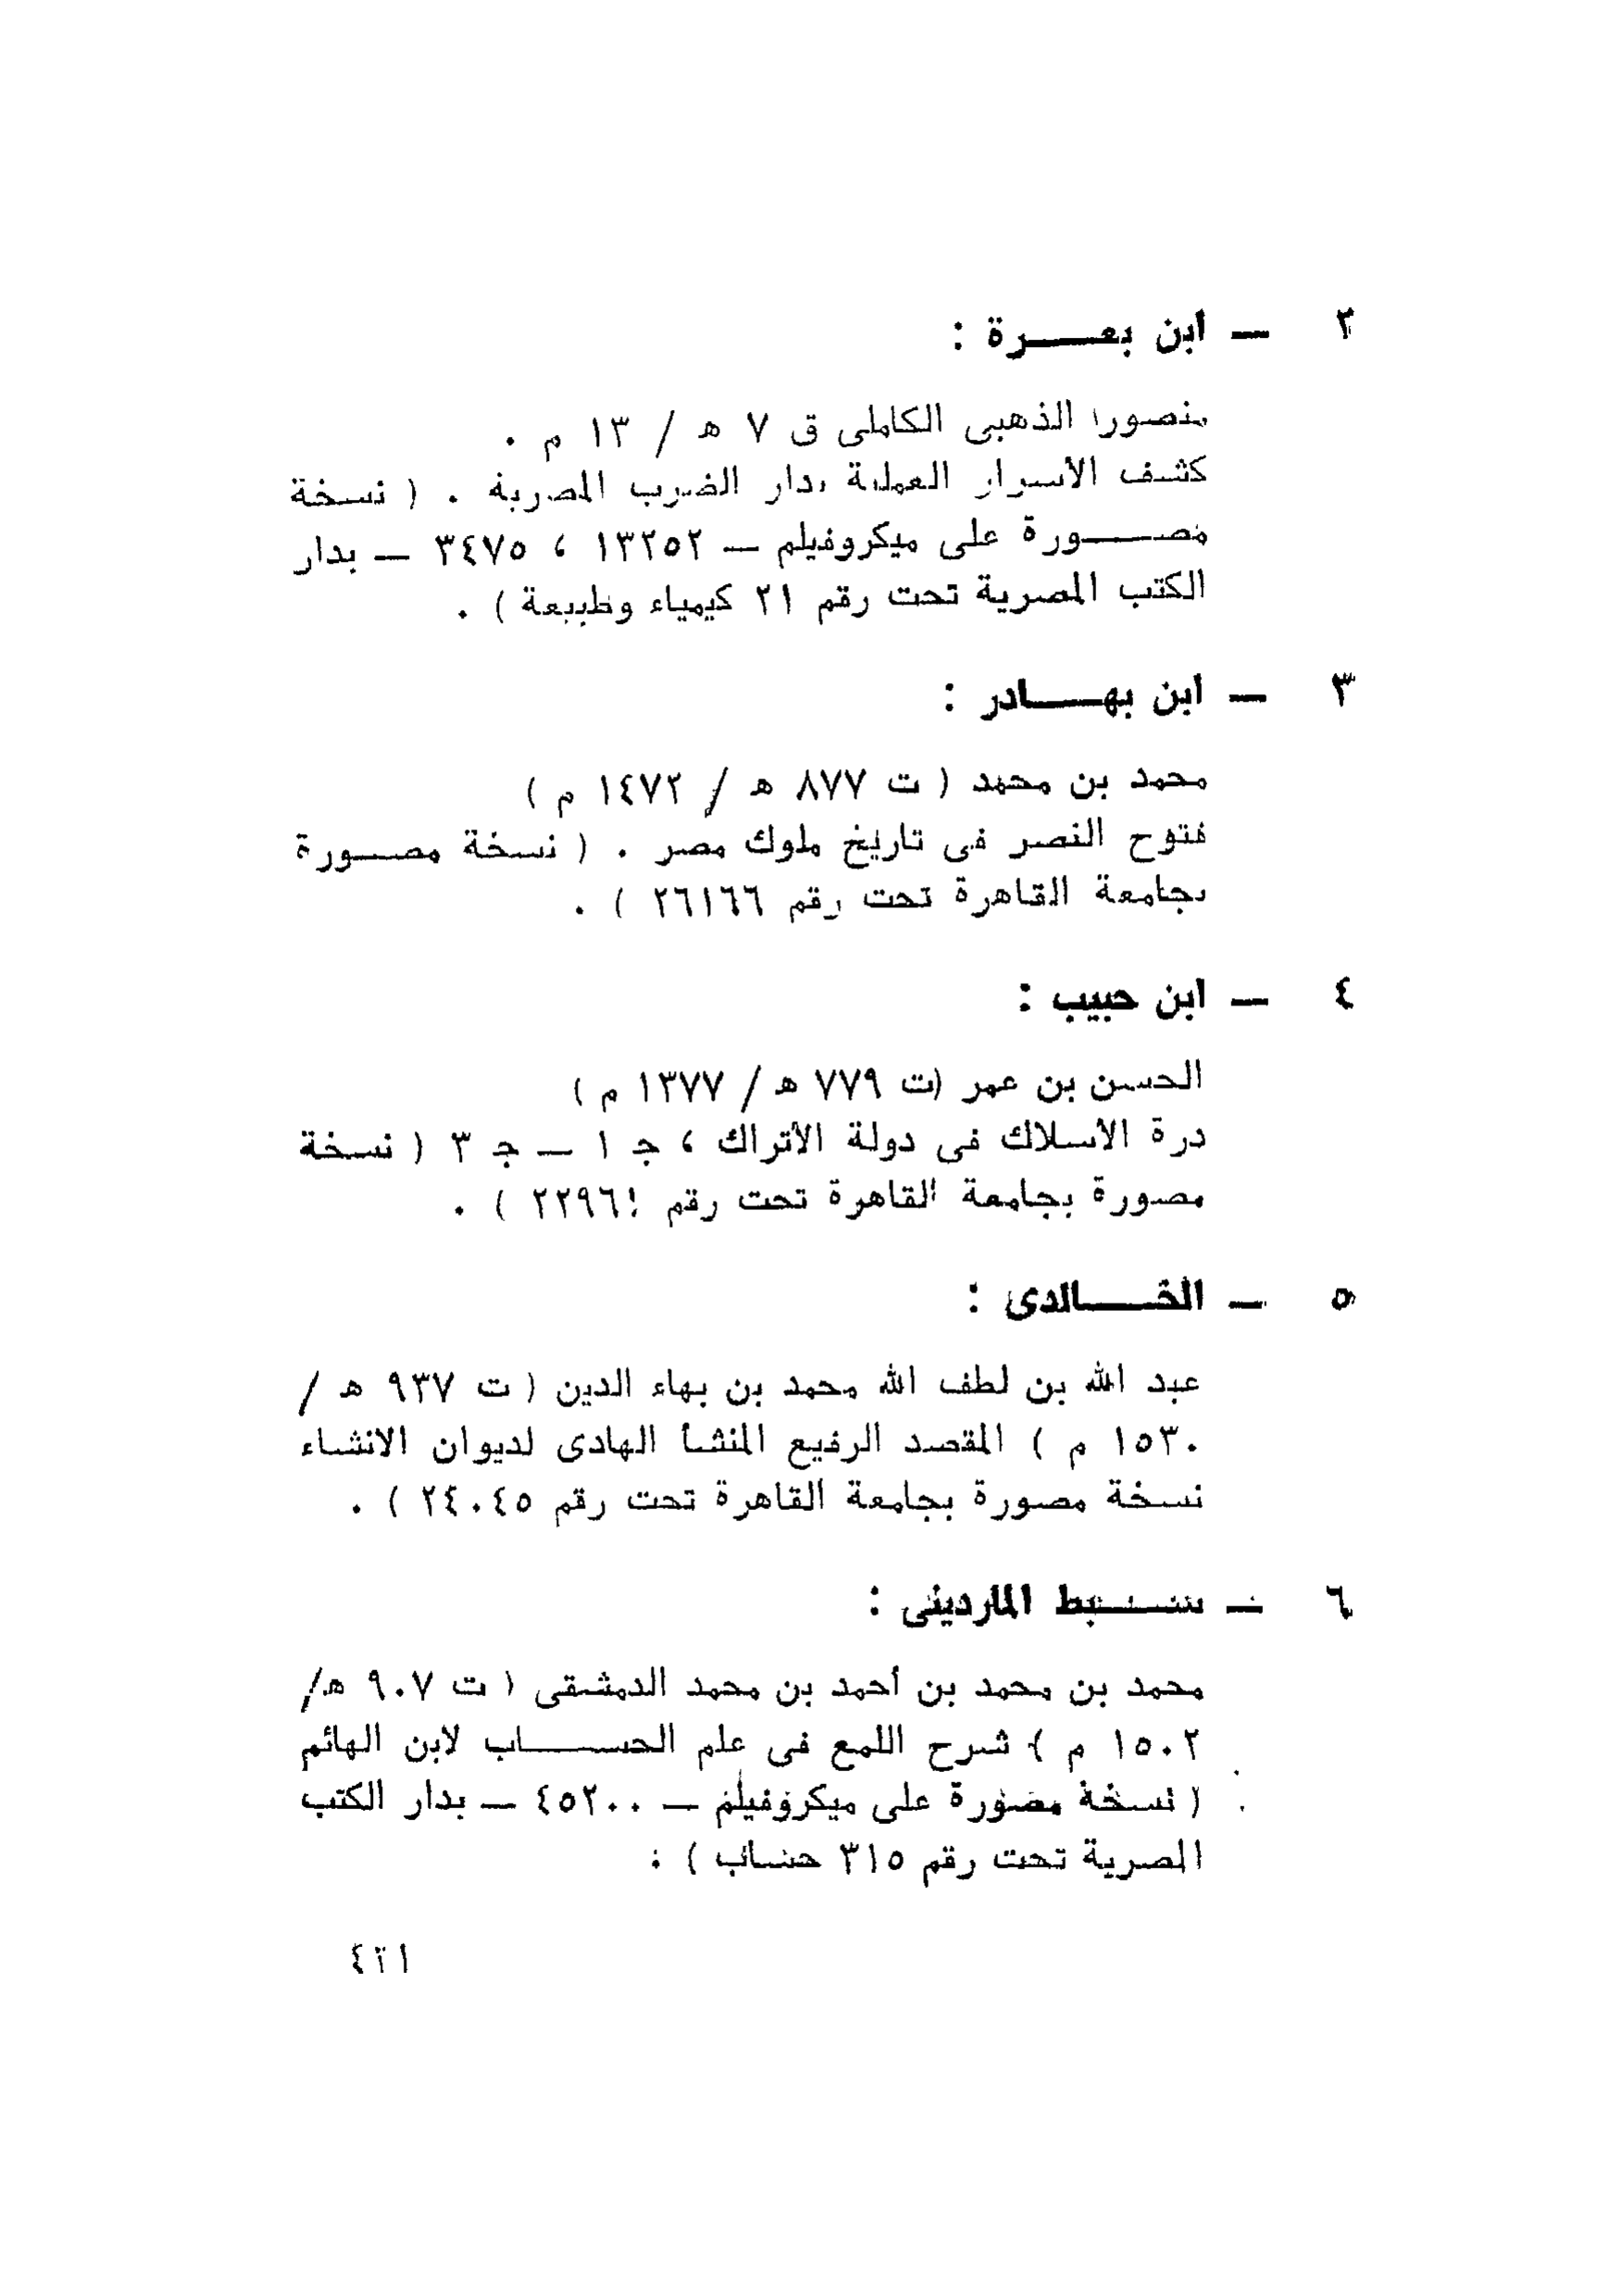 ٢ — ابن بعـــرة :
منصور الذهبى الكاملى ق ٧ ه / ١٣ م .
كشف الأسرار العملية بدار الضرب المصرية . ( نسخة
مصـــورة على ميكروفيلم — ١٣٢٥٢ ، ٣٤٧٥ — بدار
الكتب المصرية تحت رقم ٢١ كيمياء وطبيعة ) .
٣ — ابن بهـــادر :
محمد بن محمد ( ت ٨٧٧ ه / ١٤٧٢ م )
فتوح النصر فى تاريخ ملوك مصر . ( نسخة مصـورة
بجامعة القاهرة تحت رقم ٢٦١٦٦ ) .
٤ — ابن حبيب :
الحسن بن عمر (ت ٧٧٩ ه / ١٣٧٧ م )
درة الأسلاك فى دولة الأتراك ، ج ١ — ج ٣ ( نسخة
مصورة بجامعة القاهرة تحت رقم ٢٢٩٦١ ) .
٥ — الخـــالدى :
عبد الله بن لطف الله محمد بن بهاء الدين ( ت ٩٣٧ ه /
١٥٣٠ م ) المقصد الرفيع المنشأ الهادى لديوان الانشاء
نسخة مصورة بجامعة القاهرة تحت رقم ٢٤٠٤٥ ) .
٦ — ســـبط الماردينى :
محمد بن محمد بن أحمد بن محمد الدمشقى ( ت ٩٠٧ ه/
١٥٠٢ م ) شرح اللمع فى علم الحســـاب لابن الهائم
( نسخة مصورة على ميكروفيلم — ٤٥٢٠٠ — بدار الكتب
المصرية تحت رقم ٣١٥ حساب ) .